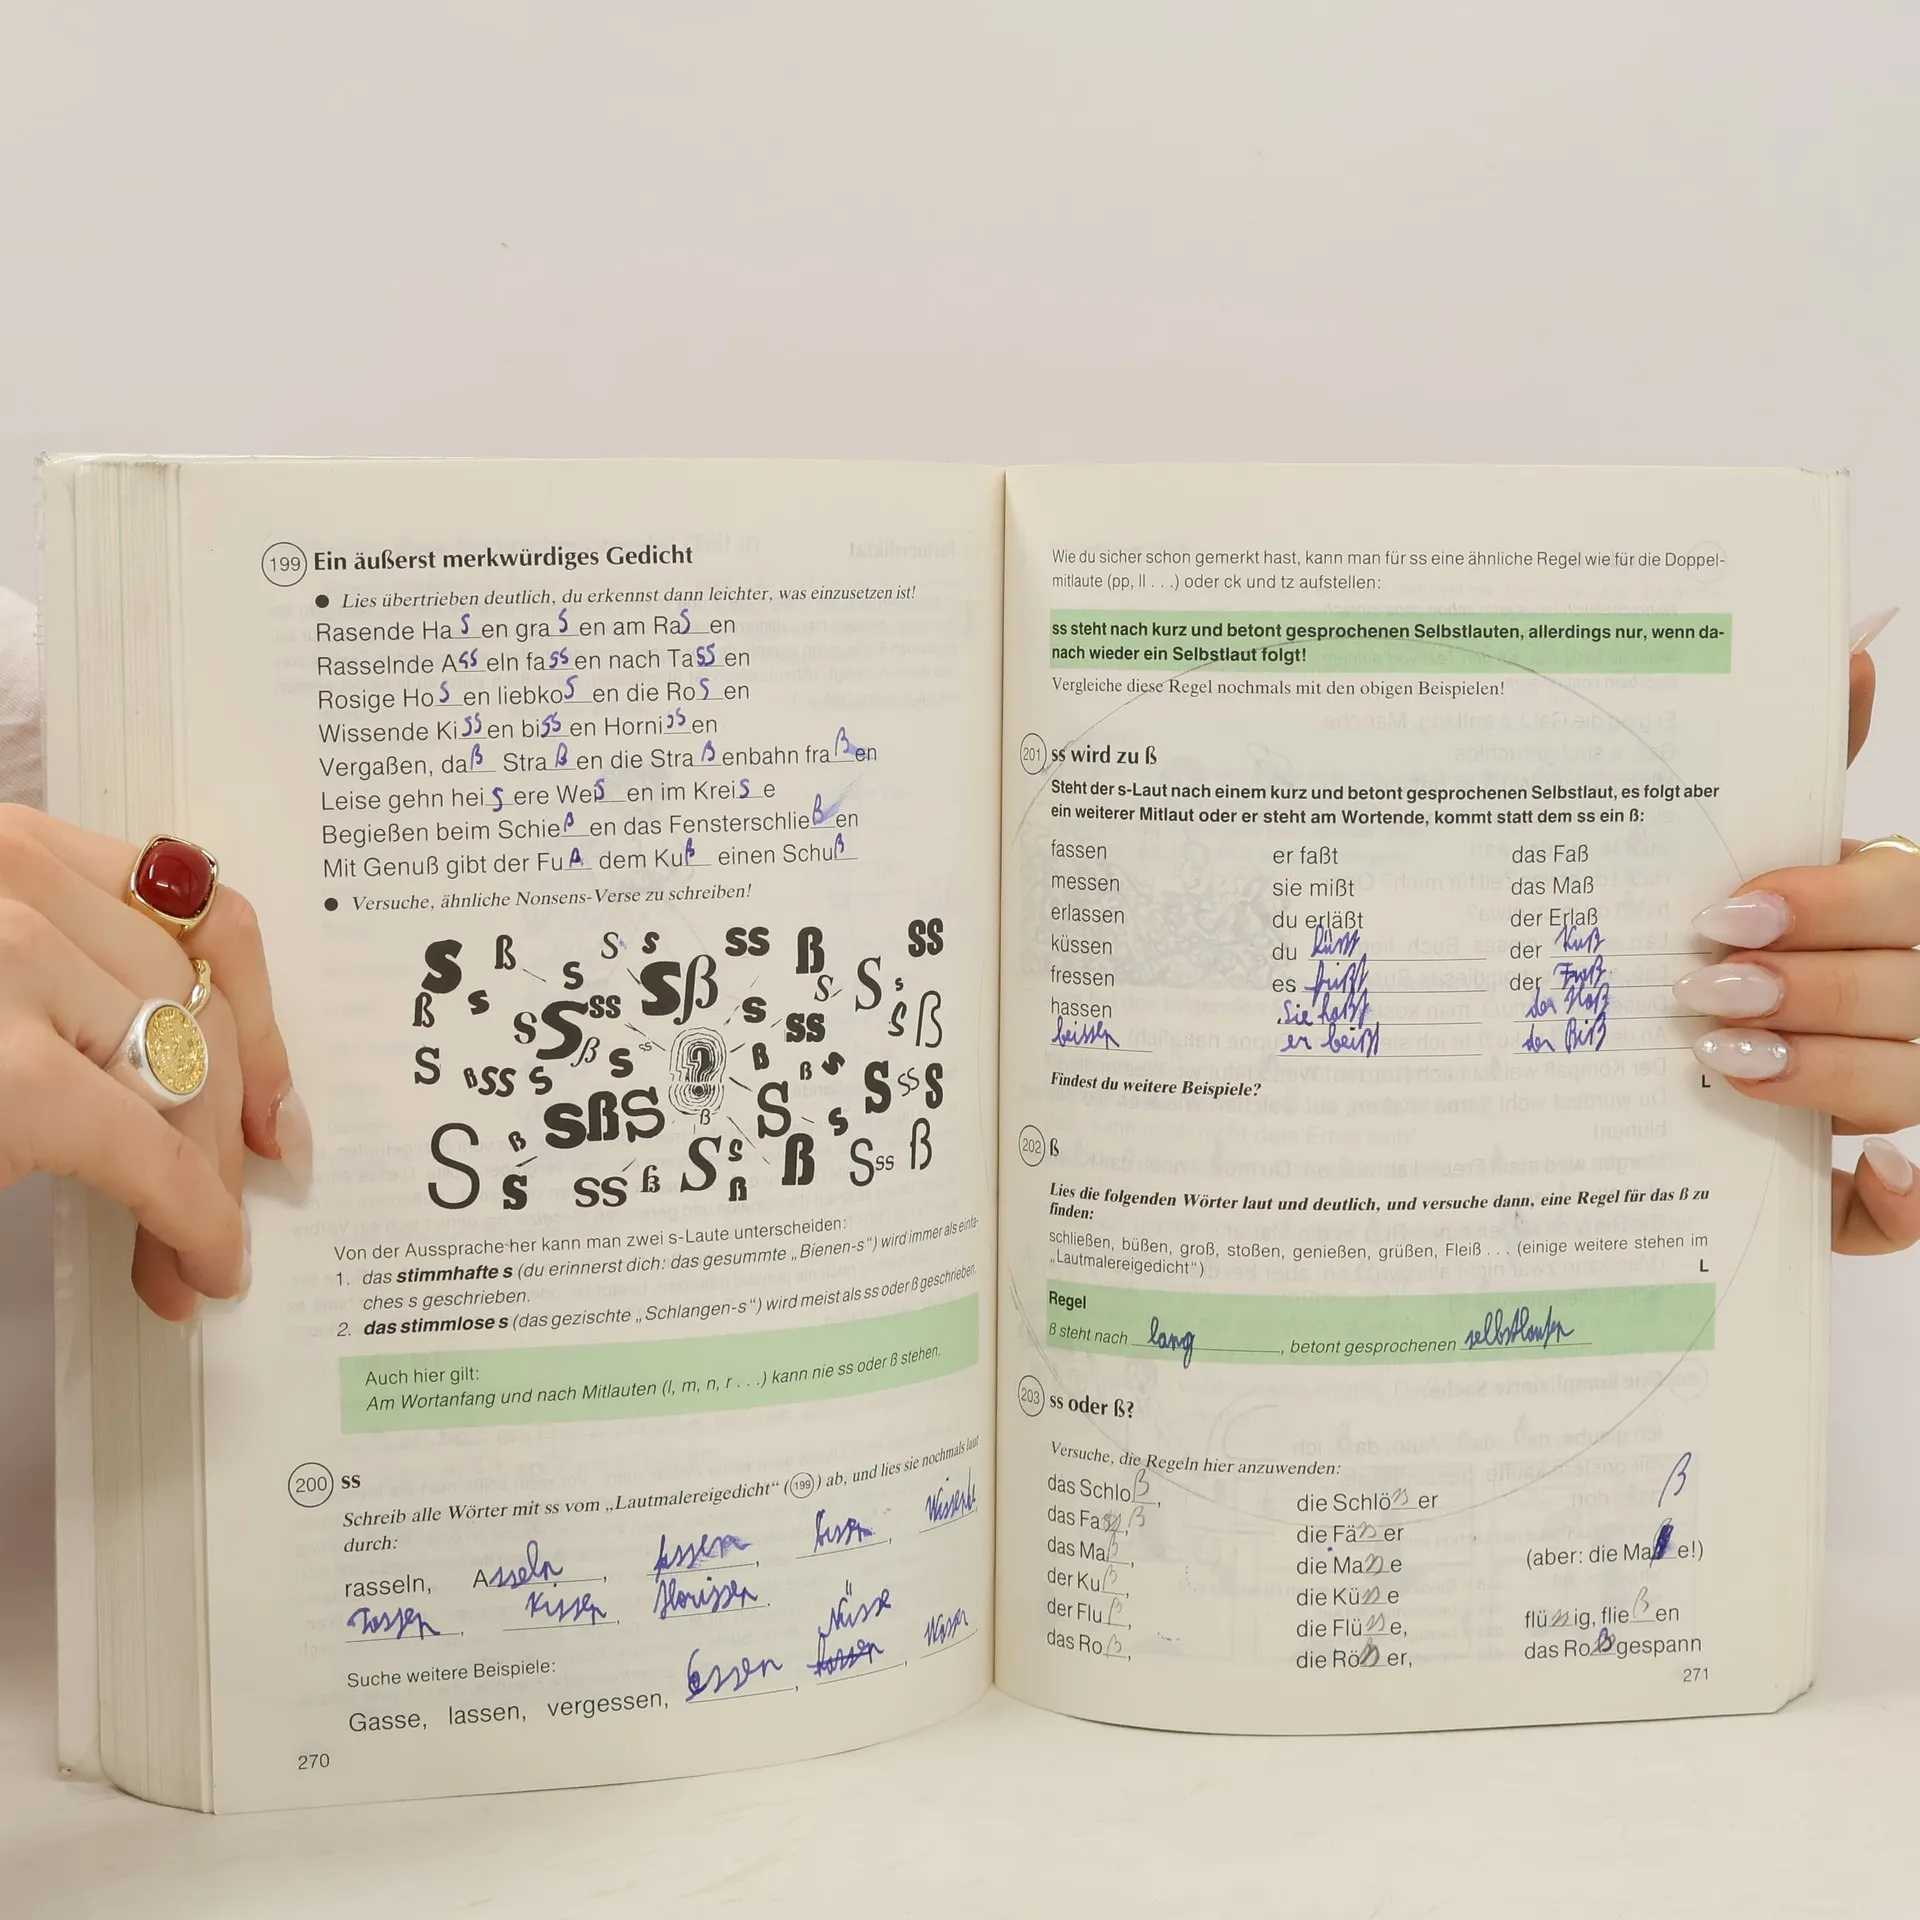 199 Ein äußerst merkwürdiges Gedicht
● Lies übertrieben deutlich, du erkennst dann leichter, was einzusetzen ist!
Rasende Hasen grasen am Rasen
Rasselnde Asseln fassen nach Tassen
Rosige Hosen liebkosen die Rosen
Wissende Kissen bissen Hornissen
Vergaßen, daß Straßen die Straßenbahn fraßen
Leise gehn heisere Weisen im Kreise
Begießen beim Schießen das Fensterschließen
Mit Genuß gibt der Fuß dem Kuß einen Schuß
● Versuche, ähnliche Nonsens-Verse zu schreiben!
Von der Aussprache her kann man zwei s-Laute unterscheiden:
1. das stimmhafte s (du erinnerst dich: das gesummte „Bienen-s“) wird immer als einfa-
ches s geschrieben.
2. das stimmlose s (das gezischte „Schlangen-s“) wird meist als ss oder ß geschrieben.
Auch hier gilt:
Am Wortanfang und nach Mitlauten (l, m, n, r . . .) kann nie ss oder ß stehen.
200 ss
Schreib alle Wörter mit ss vom „Lautmalereigedicht“ (199) ab, und lies sie nochmals laut
durch:
rasseln, Asseln, fassen, bissen, Wissende
Tassen, Kissen, Hornissen.
Suche weitere Beispiele:
Nüsse
Gasse, lassen, vergessen, Essen, Wasser
270
Wie du sicher schon gemerkt hast, kann man für ss eine ähnliche Regel wie für die Doppel-
mitlaute (pp, ll . . .) oder ck und tz aufstellen:
ss steht nach kurz und betont gesprochenen Selbstlauten, allerdings nur, wenn da-
nach wieder ein Selbstlaut folgt!
Vergleiche diese Regel nochmals mit den obigen Beispielen!
201 ss wird zu ß
Steht der s-Laut nach einem kurz und betont gesprochenen Selbstlaut, es folgt aber
ein weiterer Mitlaut oder er steht am Wortende, kommt statt dem ss ein ß:
fassen er faßt das Faß
messen sie mißt das Maß
erlassen du erläßt der Erlaß
küssen du küßt der Kuß
fressen es frißt der Fraß
hassen Sie haßt der Haß
beissen er beißt der Biß
Findest du weitere Beispiele? L
202 ß
Lies die folgenden Wörter laut und deutlich, und versuche dann, eine Regel für das ß zu
finden:
schließen, büßen, groß, stoßen, genießen, grüßen, Fleiß . . . (einige weitere stehen im
„Lautmalereigedicht“) L
Regel
ß steht nach lang, betont gesprochenen selbstlauten
203 ss oder ß?
Versuche, die Regeln hier anzuwenden:
ß
das Schloß, die Schlösser
das Faß, die Fässer
das Maß, die Masse (aber: die Maße!)
der Kuß, die Küsse
der Fluß, die Flüsse, flüssig, fließen
das Roß, die Rösser, das Roßgespann
271